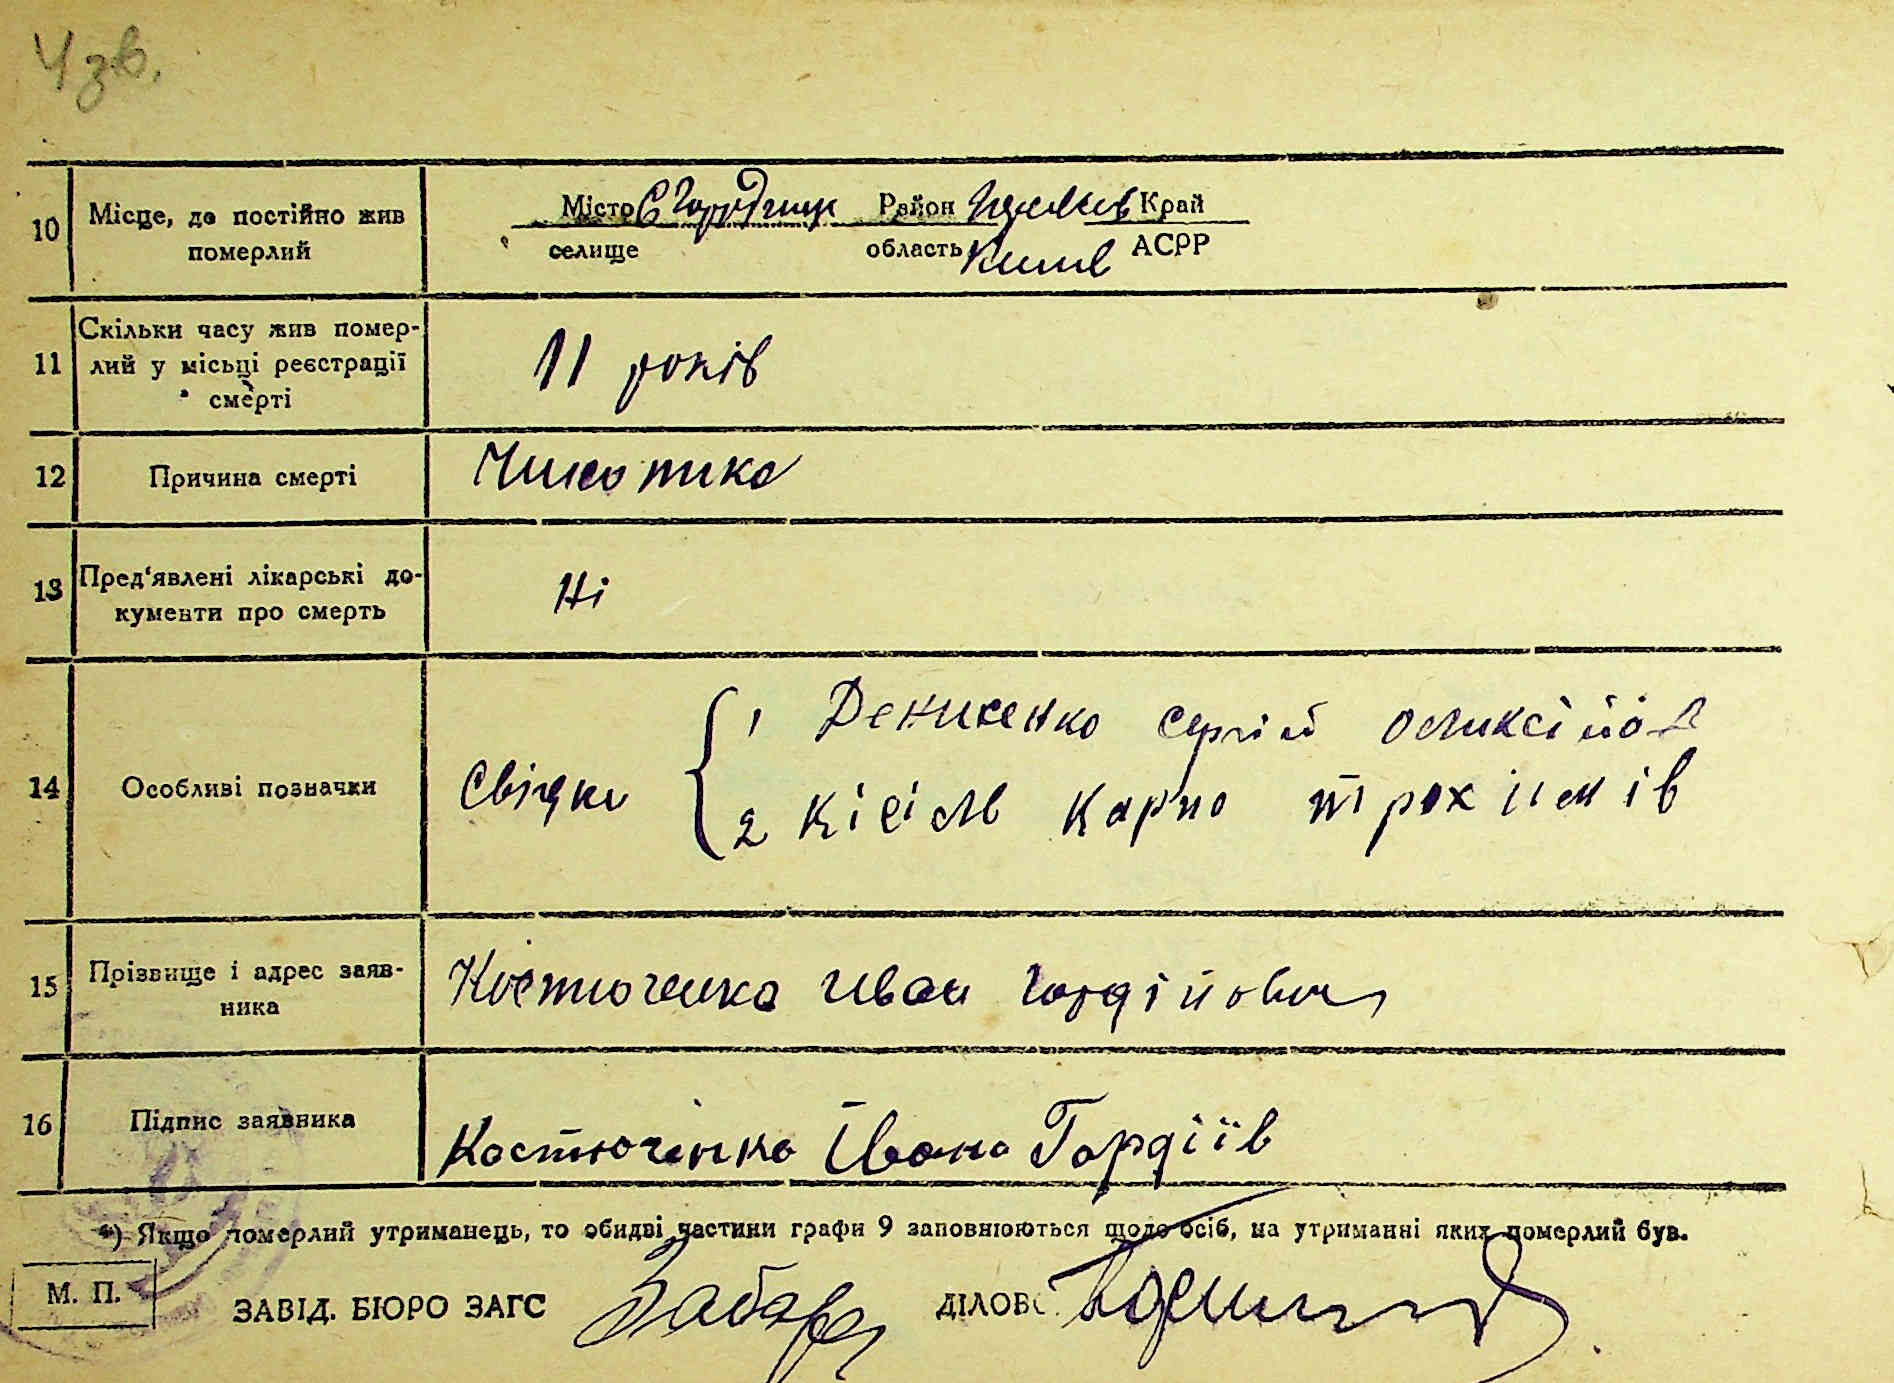 4 зв.
10 Місце, де постійно жив померлий Місто С Городище Район Край
селище область Київ АСРР
11 Скільки часу жив помер-
лий у місьці реєстрації
смерті 11 років
12 Причина смерті
13 Пред'явлені лікарські до-
кументи про смерть Ні
14 Особливі позначки Свідки 1 Денисенко Сергій
2 Кісіль Карпо
15 Прізвище і адрес заяв-
ника Костюченко Иван Гордійович
16 Підпис заявника Костючінко Івано Гордіїв
*) Якщо померлий утриманець, то обидві частини графи 9 заповнюються щодо осіб, на утриманні яких померлий був.
М. П. ЗАВІД. БЮРО ЗАГС ДІЛОВ